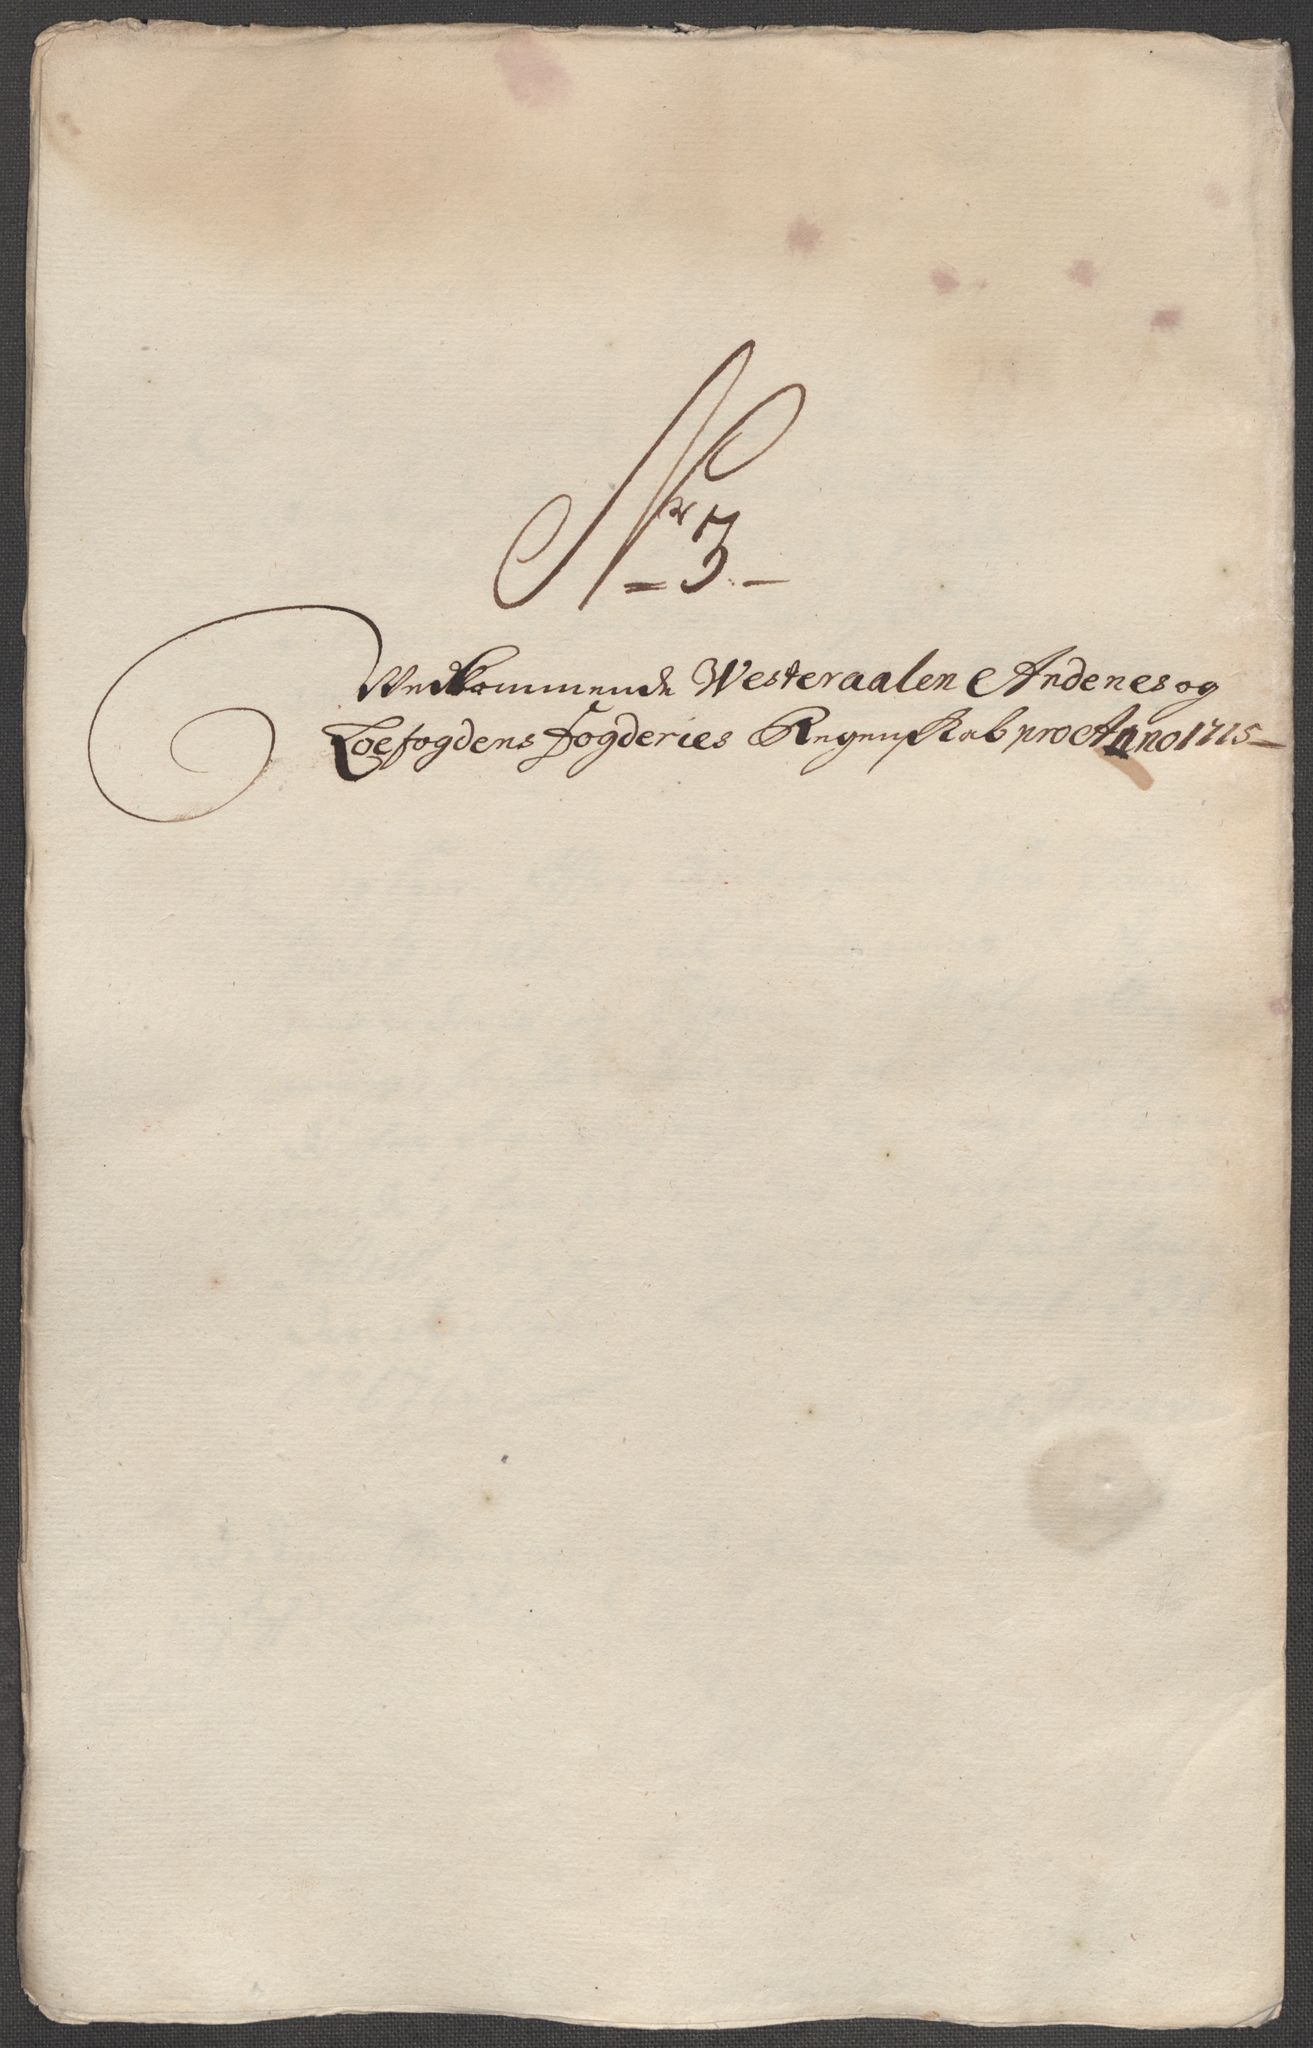 Nr 3
Vedkommende Westeraalen Andenes og
Loefogdens Fogderies Regenskab pro Anno 1715